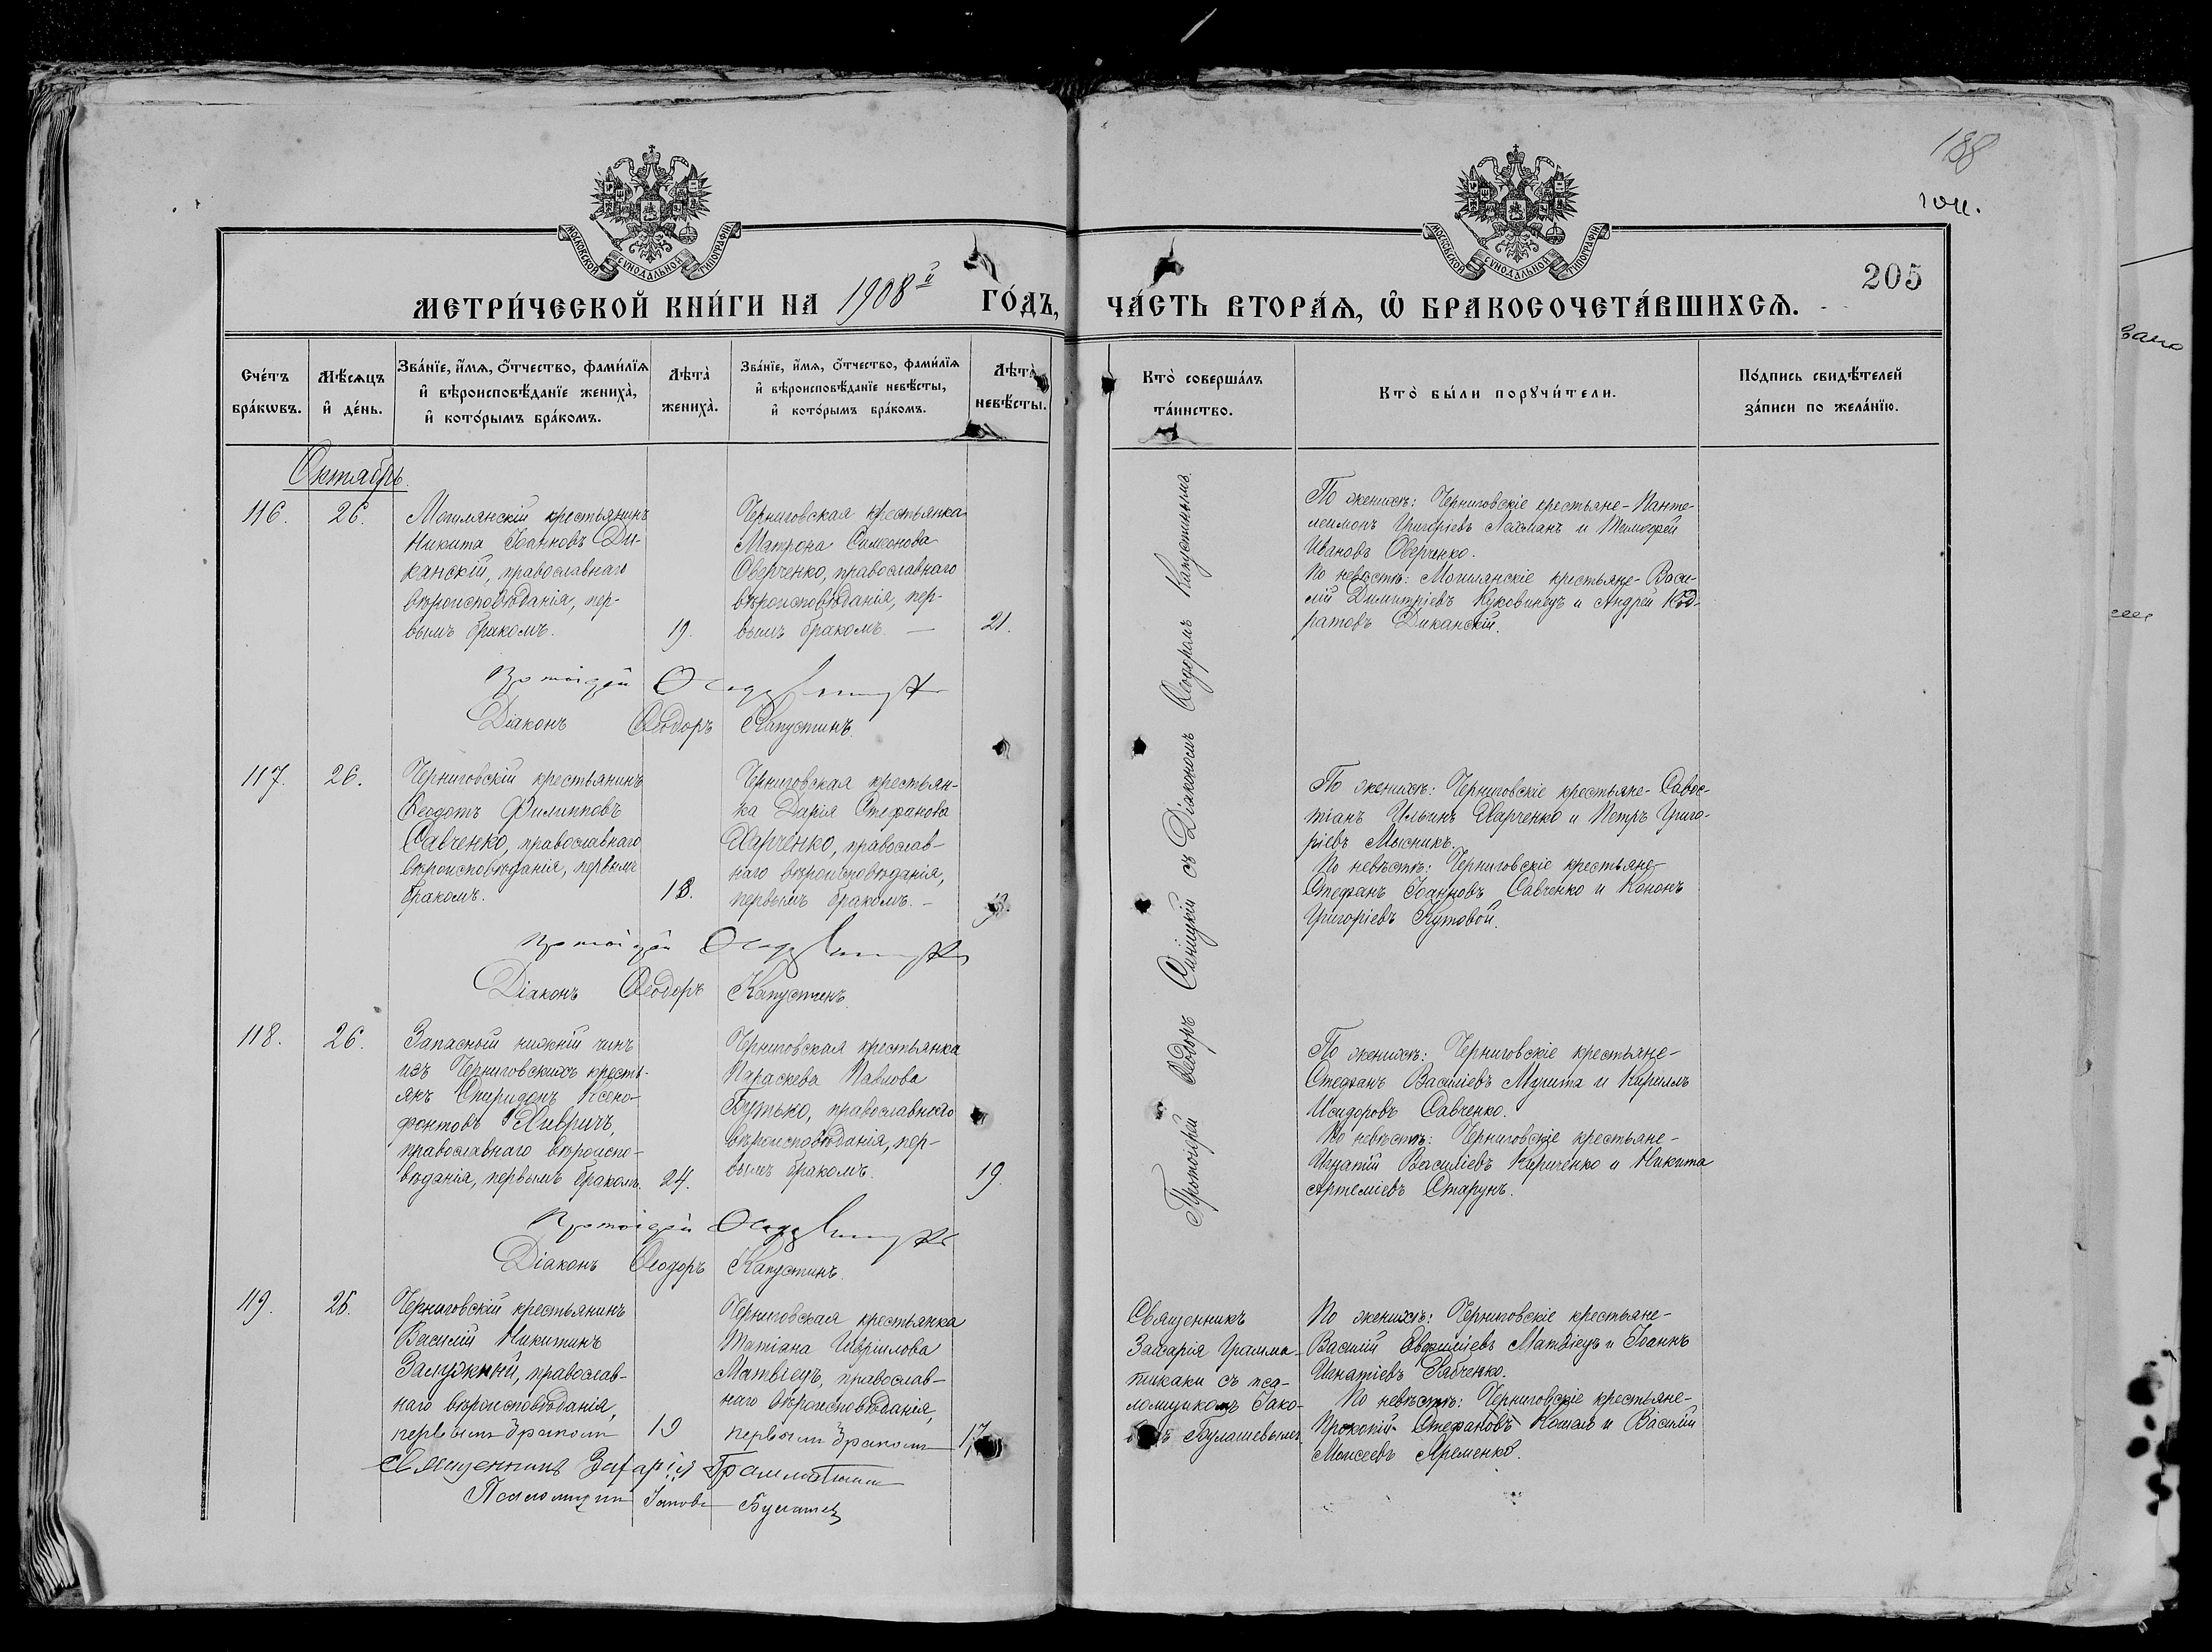 188
МОСКОВСКОЙ СѴНОДАЛЬНОЙ ТИПОГРАФІИ
МОСКОВСКОЙ СѴНОДАЛЬНОЙ ТИПОГРАФІИ
205
МЕТРИ́ЧЕСКОЙ КНИ́ГИ НА 1908й ГО́ДЪ, ЧА́СТЬ ВТОРА́Ѧ, Ѡ҆ БРАКОСОЧЕТА́ВШИХСѦ.
Сче́тъ бра́кѡвъ.
Мѣ́сѧцъ и҆ де́нь.
Зва́нїе, и҆́мѧ, ѻ҆́тчество, фами́лїѧ
и҆ вѣроисповѣ́данїе жениха̀,
и҆ кото́рымъ бра́комъ.
Лѣта̀ жениха̀.
Зва́нїе, и҆́мѧ, ѻ҆́тчество, фами́лїѧ
и҆ вѣроисповѣ́данїе невѣ́сты,
и҆ кото́рымъ бра́комъ.
Лѣта̀ невѣ́сты.
Кто̀ соверша́лъ
та́инство.
Кто̀ бы́ли порꙋчи́тели.
По́дпись свидѣ́телей
за́писи по жела́нїю.
Октябрь.
116.
26.
Могилянскій крестьянинъ
Никита Іоанновъ Ди-
канскій, православнаго
вѣроисповѣданія, пер-
вымъ бракомъ.
19.
Черниговская крестьянка
Матрона Симеонова
Оверченко, православнаго
вѣроисповѣданія, пер-
вымъ бракомъ. —
21.
По женихѣ: Черниговскіе крестьяне - Панте-
леимонъ Григоріевъ и Тимофей
Ивановъ Оверченко.
По невѣстѣ: Могилянскіе крестьяне - Васи-
лій Димитріевъ Куковинецъ и Андрей Код-
ратовъ Диканскій.
Протоіерей
Діаконъ Ѳеодоръ Капустинъ.
117.
26.
Черниговскій крестьянинъ
Ѳеодотъ Филипповъ
Савченко, православнаго
вѣроисповѣданія, первымъ
бракомъ.
18.
Черниговская крестьян-
ка Дарія Стефанова
Харченко, православ-
наго вѣроисповѣданія,
первымъ бракомъ. -
По женихѣ: Черниговскіе крестьяне - Савос-
тіанъ Ильинъ Харченко и Петръ Григо-
ріевъ Мысникъ.
По невѣстѣ: Черниговскіе крестьяне -
Стефанъ Іоанновъ Савченко и Кононъ
Григоріевъ Кутовой.
Протоіерей
Діаконъ Ѳеодоръ Капустинъ.
118.
26.
Запасный нижній чинъ
изъ Черниговскихъ кресть-
янъ Спиридонъ Ксено-
фонтовъ Хивричъ,
православнаго вѣроиспо-
вѣданія, первымъ бракомъ.
24.
Черниговская крестьянка
Параскева Павлова
Бутько, православнаго
вѣроисповѣданія, пер-
вымъ бракомъ.
19.
По женихѣ: Черниговскіе крестьяне -
Стефанъ Василіевъ Мурита и Кириллъ
Исидоровъ Савченко.
По невѣстѣ: Черниговскіе крестьяне -
Игнатій Василіевъ Кириченко и Никита
Артеміевъ Старунъ.
Протоіерей
Діаконъ Ѳеодоръ Капустинъ.
Протоіерей Ѳеодоръ Синицкій съ Діакономъ Ѳеодоромъ Капустинымъ.
119.
26.
Черниговскій крестьянинъ
Василій Никитинъ
Залужный, православ-
наго вѣроисповѣданія,
первымъ бракомъ
19
Черниговская крестьянка
Татіана Гавріилова
Матвіецъ, православ-
наго вѣроисповѣданія,
первымъ бракомъ
17
Священникъ
Захарія Грамма-
тикаки съ пса-
ломщикомъ Іако-
Булашевымъ
По женихѣ: Черниговскіе крестьяне -
Василій Матвіецъ и Іоаннъ
Игнатіевъ Рабченко.
По невѣстѣ: Черниговскіе крестьяне -
Прокопій Стефановъ и Василій
Моисеевъ Яременко.
Священникъ Захарія
Псаломщикъ Іаковъ Булашев